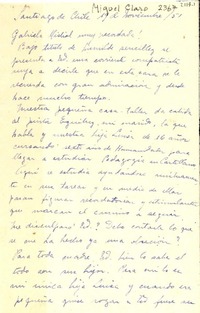 Miguel Glazo 2367
Santiago de Chile 19 de Noviembre / 51
Gabriela Mistral muy recordada!
Bajo título de humilde sencillez se
presenta a Ud. una cordial compatriota
suya a decirle que en esta casa se le
recuerda con gran admiración y desde
hace mucho tiempo.
Nuestra pequeña casa. Taller de calado
al
mi marido, la que
habla y nuestra hija
de 16 años
cursando sexto año de Humanidades para
llegar a estudiar Pedagogía en Castellano
Aquí se estudia ayudándose mutuamente
en sus tareas y en medio de ellas
pasan figuras recordatorias y estimulantes
que marcan el camino a seguir.
Me disculpará Ud.? Debo contarle lo que
se me ha hecho ya una obsesión?
Para toda madre Ud. bien lo sabe el
todo son sus hijos. Para mí lo es
mi única hija
y cuando era
pequeña quise rogar a Ud. fuese su